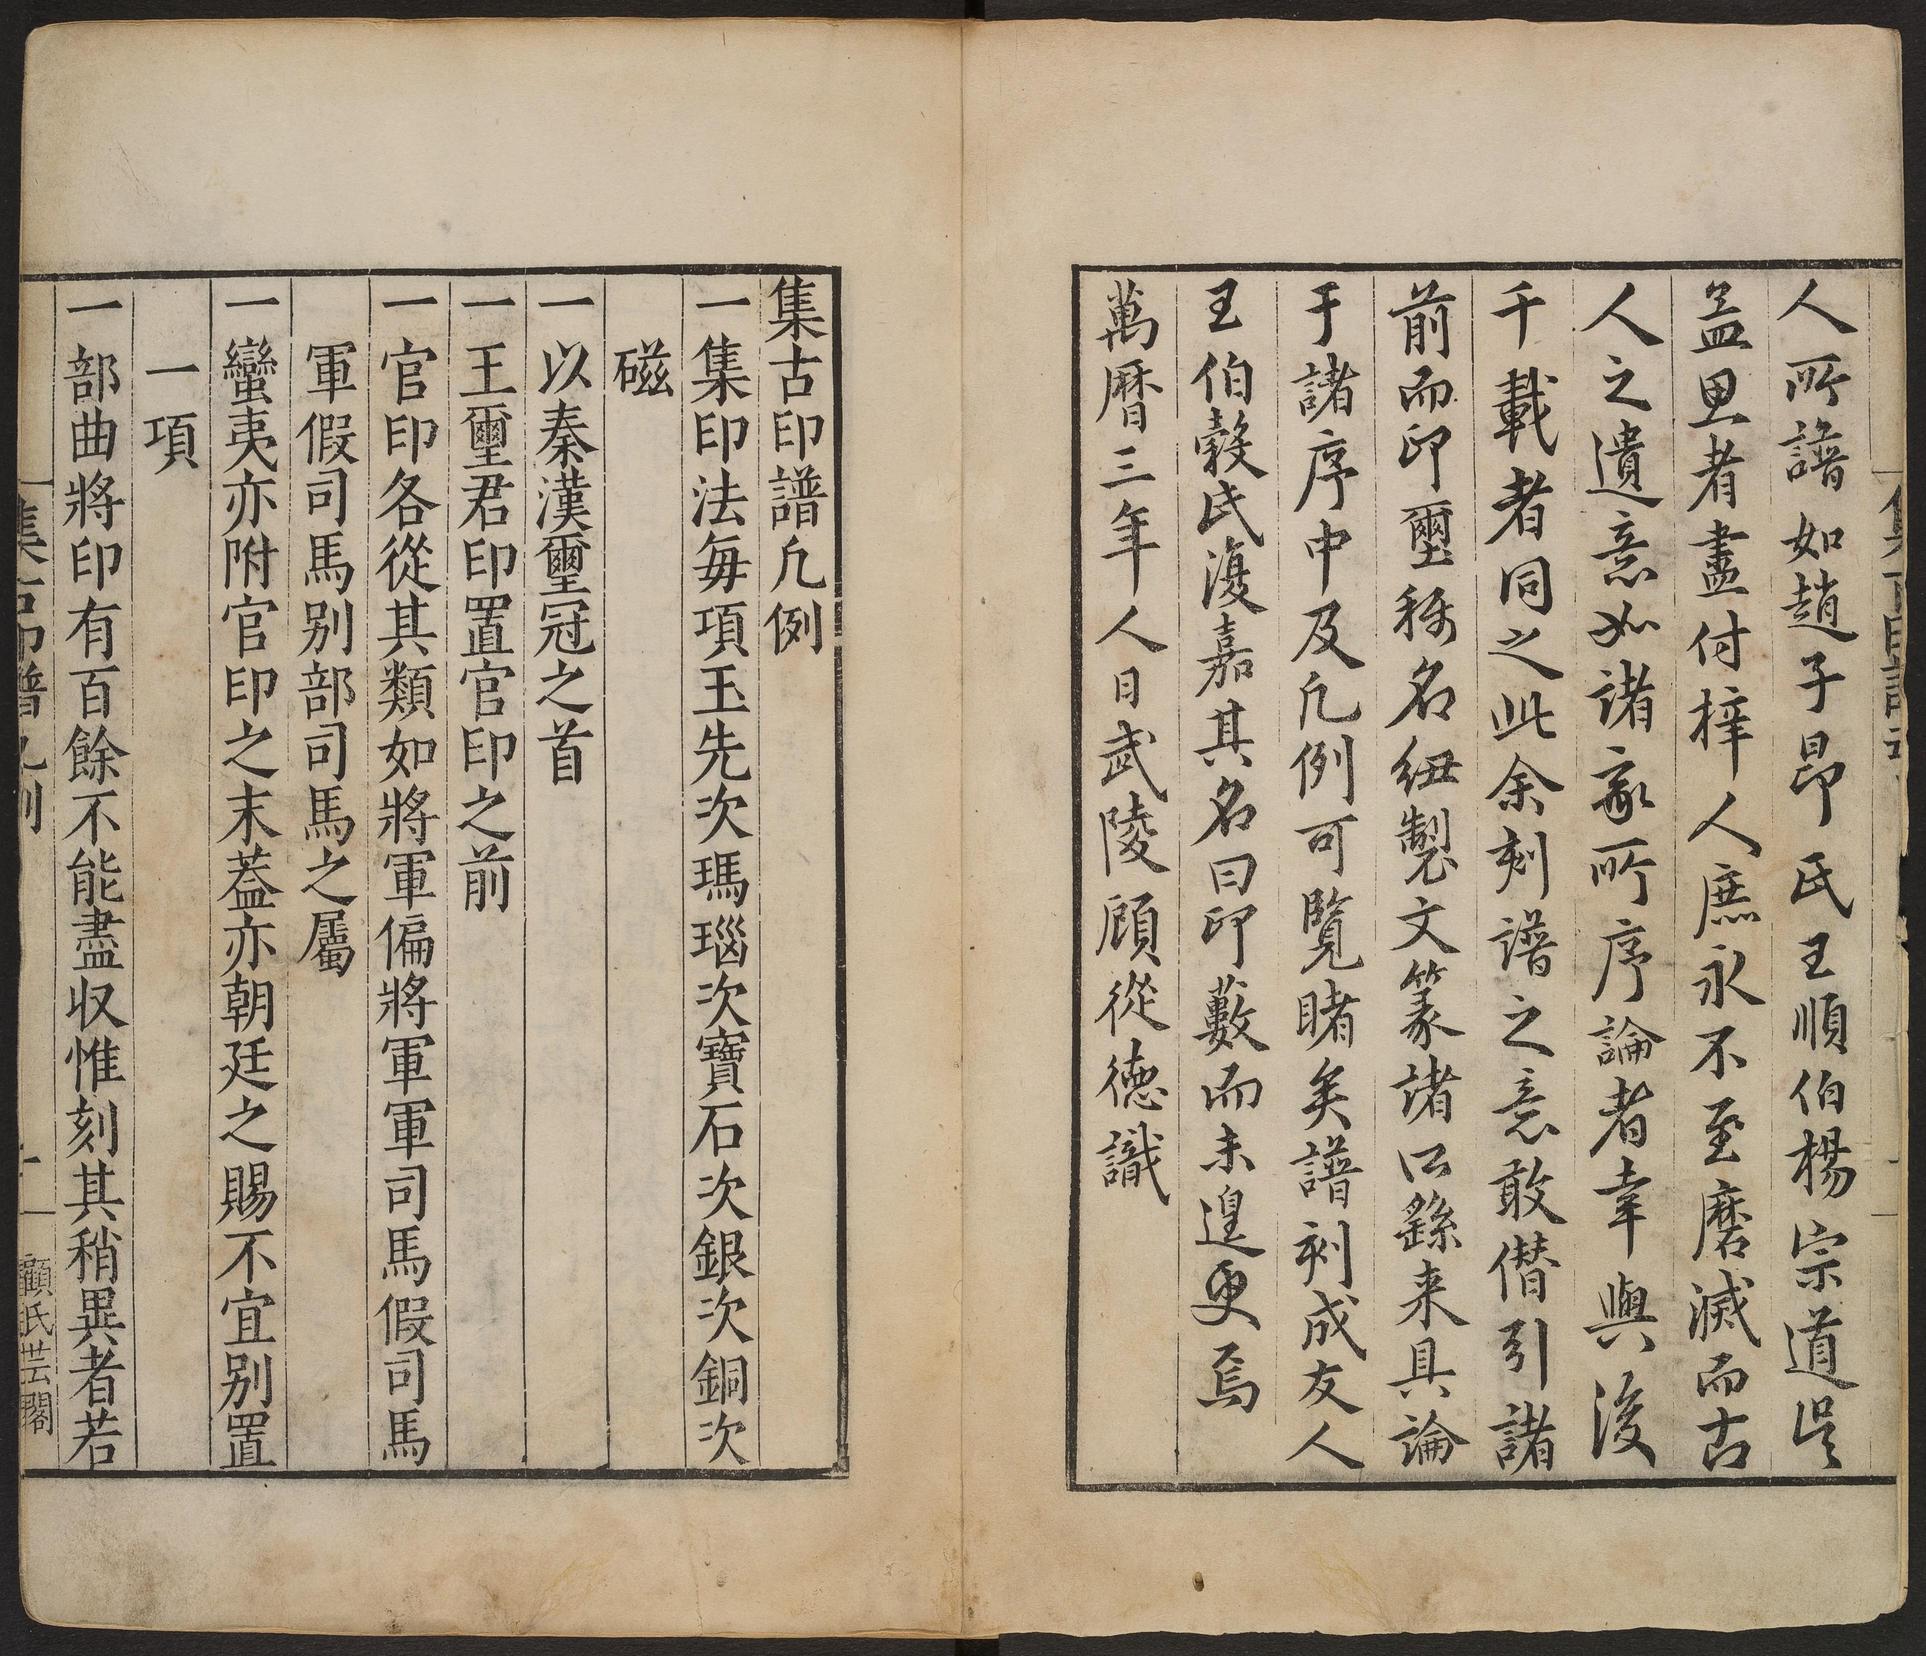 人所譜如趙子昂氏王順伯楊宗道吳
孟思者盡付梓人庶永不至磨滅而古
人之遺意如諸家所序論者幸與後
千載者同之此余刻譜之意敢僭引諸
前而印璽稱名紐製文篆諸所繇来具論
于諸序中及凢例可覧睹矣譜刻成友人
王伯穀氏復嘉其名曰印藪而未遑更焉
萬曆三年人日武陵顧從德識
集古印譜凢例
一集印法每項玉先次瑪瑙次寶石次銀次銅次
磁
一以秦漢璽冠之首
一王璽君印置官印之前
一官印各從其類如將軍偏將軍軍司馬假司馬
軍假司馬别部司馬之屬
一蠻夷亦附官印之末葢亦朝廷之賜不宜别置
一項
一部曲將印有百餘不能盡収惟刻其稍異者若
集古印譜凢例
顧氏芸閣